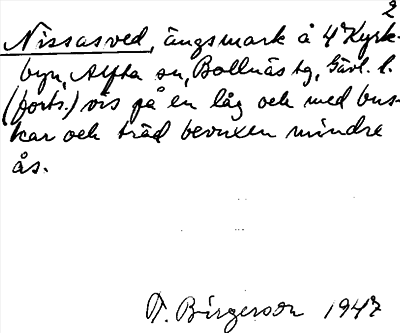 2
Nissasved, ängsmark å 4ª Kyrk-
byn, Alfta sn, Bollnäs tg, Gävl. l.
(forts.) vis på en låg och med bus-
kar och träd bevuxen mindre
ås.
T. Birgerson 1947